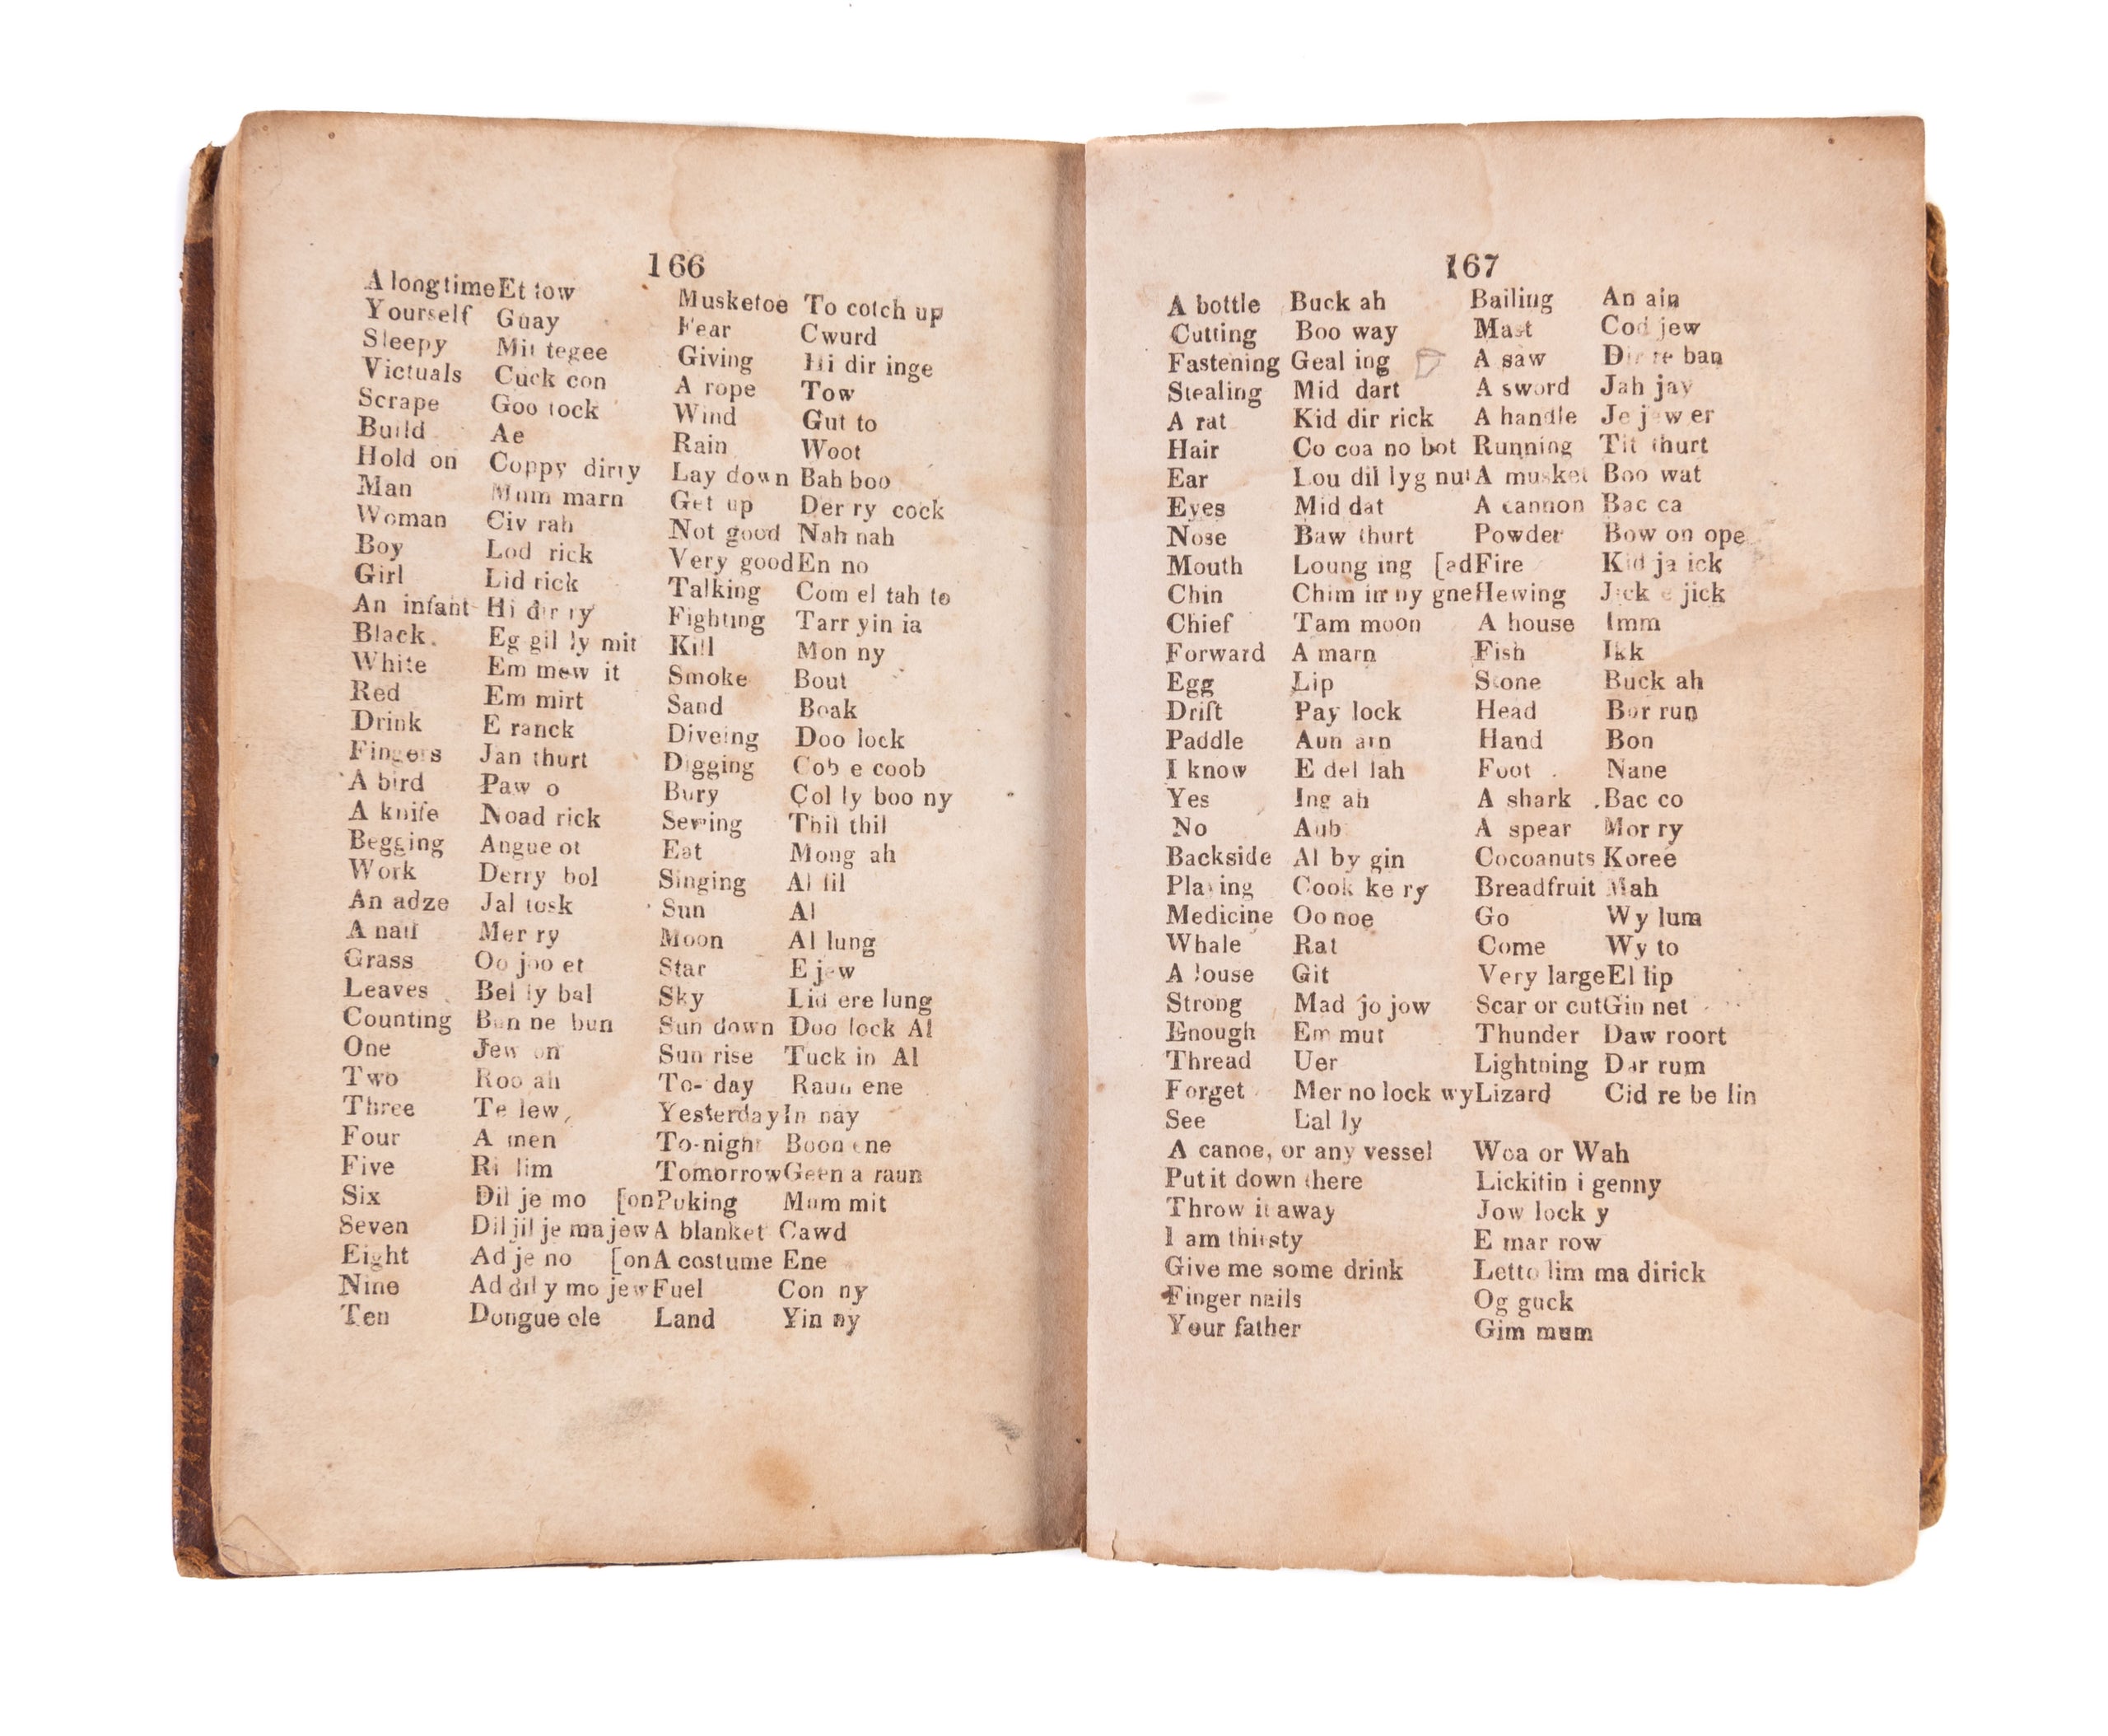 166
A long time Et tow
Yourself Guay
Sleepy Mit tegee
Victuals Cuck con
Scrape Goo tock
Build Ae
Hold on Coppy dirty
Man Mum marn
Woman Civ rah
Boy Lod rick
Girl Lid rick
An infant Hi dir ry
Black Eg gil ly mit
White Em mew it
Red Em mirt
Drink E ranck
Fingers Jan thurt
A bird Paw o
A knife Noad rick
Begging Angue ot
Work Derry bol
An adze Jal tosk
A nail Mer ry
Grass Oo joo et
Leaves Bel ly bal
Counting Bun ne bun
One Jew on
Two Roo ah
Three Te lew
Four A men
Five Ri lim
Six Dil je mo [on
Seven Dil jil je ma jew
Eight Ad je no [on
Nine Ad dil y mo jew
Ten Dongue ole
Musketoe To cotch up
Fear Cwurd
Giving Hi dir inge
A rope Tow
Wind Gut to
Rain Woot
Lay down Bah boo
Get up Der ry cock
Not good Nah nah
Very good En no
Talking Com el tah to
Fighting Tarr yin ia
Kill Mon ny
Smoke Bout
Sand Boak
Diveing Doo lock
Digging Cob e coob
Bury Col ly boo ny
Sewing Thil thil
Eat Mong ah
Singing Al lil
Sun Al
Moon Al lung
Star E jew
Sky Lid ere lung
Sun down Doo lock Al
Sun rise Tuck in Al
To-day Raun ene
Yesterday In nay
To-night Boon ene
Tomorrow Geen a raun
Puking Mum mit
A blanket Cawd
A costume Ene
Fuel Con ny
Land Yin ny
167
A bottle Buck ah
Cutting Boo way
Fastening Geal ing
Stealing Mid dart
A rat Kid dir rick
Hair Co coa no bot
Ear Lou dil lyg nut
Eyes Mid dat
Nose Baw thurt
Mouth Loung ing [ad
Chin Chim im ny gne
Chief Tam moon
Forward A marn
Egg Lip
Drift Pay lock
Paddle Aun arn
I know E del lah
Yes Ing ah
No Aub
Backside Al by gin
Playing Cook ke ry
Medicine Oo noe
Whale Rat
A louse Git
Strong Mad jo jow
Enough Em mut
Thread Uer
Forget Mer no lock wy
See Lal ly
Bailing An ain
Mast Cod jew
A saw Dir re ban
A sword Jah jay
A handle Je jew er
Running Tit thurt
A musket Boo wat
A cannon Bac ca
Powder Bow on ope
Fire Kid ja ick
Hewing Jick e jick
A house Imm
Fish Ikk
Stone Buck ah
Head Bor run
Hand Bon
Foot Nane
A shark Bac co
A spear Mor ry
Cocoanuts Koree
Breadfruit Mah
Go Wy lum
Come Wy to
Very large El lip
Scar or cut Gin net
Thunder Daw roort
Lightning Dar rum
Lizard Cid re be lin
A canoe, or any vessel Woa or Wah
Put it down there Lickitin i genny
Throw it away Jow lock y
I am thirsty E mar row
Give me some drink Letto lim ma dirick
Finger nails Og guck
Your father Gim mum